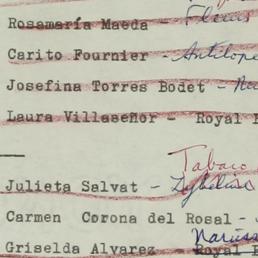 Rosamaría Maeda -
Carito Fournier - Antilope
Josefina Torres Bodet -
Laura Villaseñor - Royal
Tabaco
Julieta Salvat - Zybeline
Carmen Corona del Rosal -
Griselda Alvarez Royal